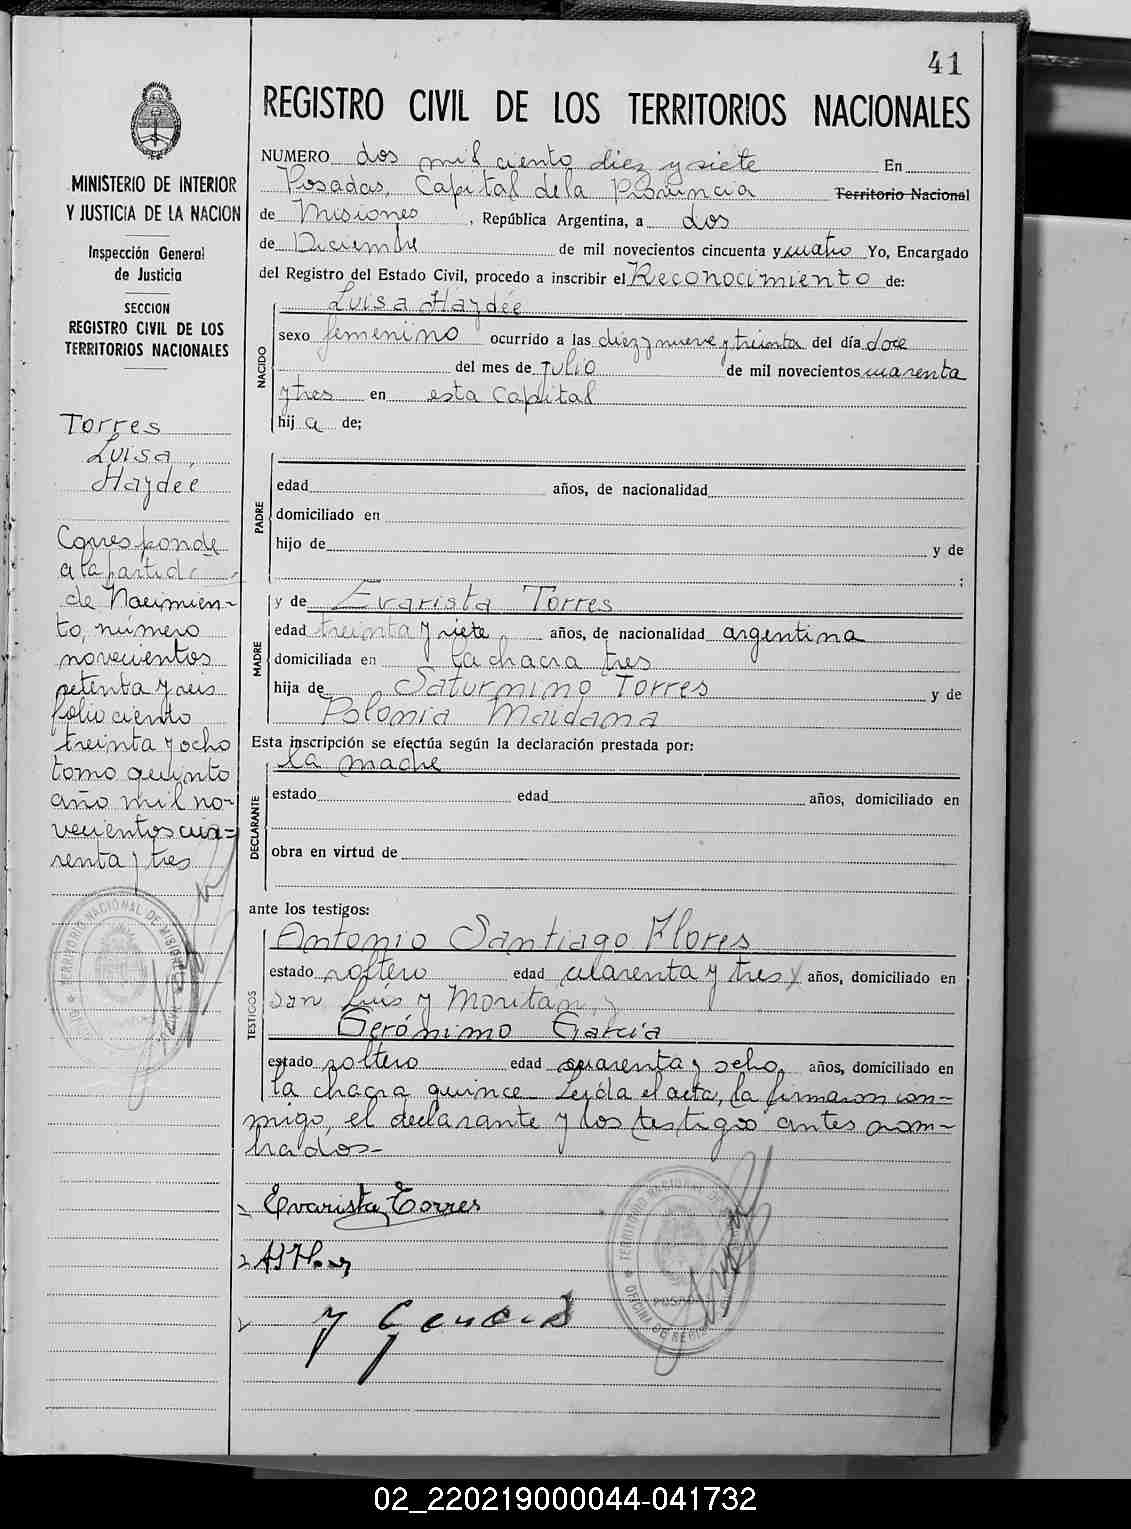 41
REGISTRO CIVIL DE LOS TERRITORIOS NACIONALES
MINISTERIO DE INTERIOR
Y JUSTICIA DE LA NACION
Inspección General
de Justicia
SECCION
REGISTRO CIVIL DE LOS
TERRITORIOS NACIONALES
Torres
Luisa,
Haydee
Corresponde
a la partida
de Nacimien-
to, número
novecientos
setenta y seis
folio ciento
treinta y ocho
tomo quinto
año mil no-
vecientos cua-
renta y tres
NUMERO dos mil ciento diez y siete En
Posadas, Capital de la Provincia Territorio Nacional
de Misiones, República Argentina, a dos
de Diciembre de mil novecientos cincuenta y cuatro Yo, Encargado
del Registro del Estado Civil, procedo a inscribir el Reconocimiento de:
NACIDO
Luisa Haydée
sexo femenino ocurrido a las diez y nueve y treinta del día doce
del mes de Julio de mil novecientos cuarenta
y tres en esta Capital
hija de;
PADRE
edad años, de nacionalidad
domiciliado en
hijo de y de
;
MADRE
y de Evarista Torres
edad treinta y siete, años, de nacionalidad argentina
domiciliada en la chacra tres
hija de Saturnino Torres y de
Polonia Maidana
Esta inscripción se efectúa según la declaración prestada por:
DECLARANTE
la madre
estado edad años, domiciliado en
obra en virtud de
ante los testigos:
TESTIGOS
Antonio Santiago Flores
estado soltero edad cuarenta y tres años, domiciliado en
San Luis y
Gerónimo García
estado soltero edad cuarenta y ocho, años, domiciliado en
la chacra quince. Leída el acta, la firmaron con-
migo, el declarante y los testigos antes nom-
brados.-
Evarista Torres
TERRITORIO NACIONAL DE MISIONES
TERRITORIO NACIONAL DE
OFICINA DE
02_220219000044-041732